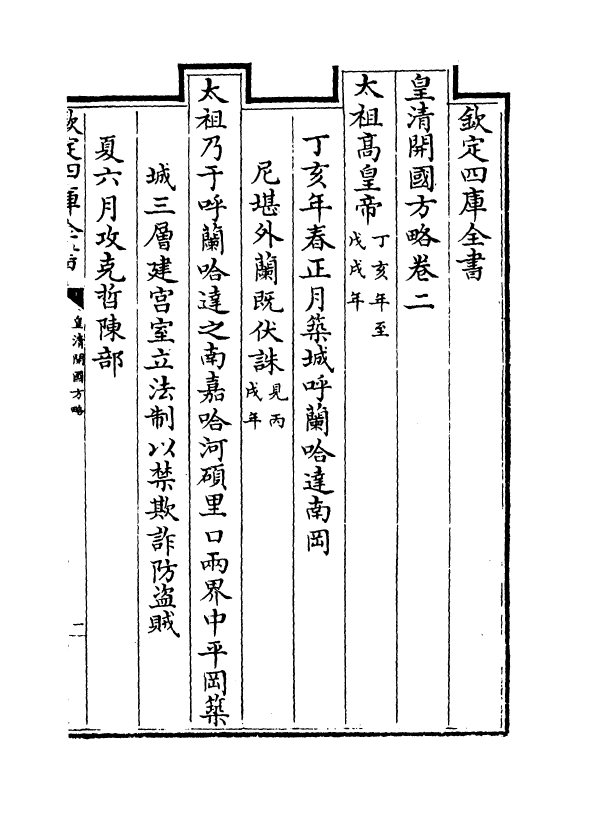 欽定四庫全書
皇清開國方略卷二
太祖髙皇帝丁亥年至戊戌年
丁亥年春正月築城呼蘭哈達南岡
尼堪外蘭既伏誅見丙戌年
太祖乃于呼蘭哈達之南嘉哈河碩里口兩界中平岡築
城三層建宫室立法制以禁欺詐防盗賊
夏六月攻克哲陳部
欽定四庫全書
皇清開國方略